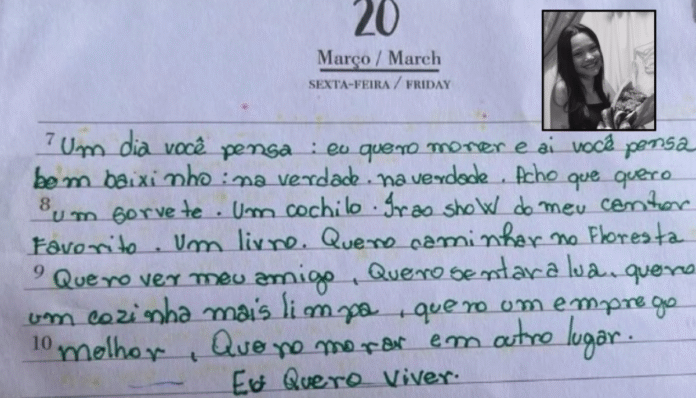 20
Março / March
SEXTA-FEIRA / FRIDAY
7 Um dia você pensa : eu quero morrer e ai você pensa
bem baixinho : na verdade . na verdade . Acho que quero
8 um sorvete . Um cochilo . Ir ao show do meu cantor
Favorito . Um livro . Quero caminhar na Floresta
9 Quero ver meu amigo , Quero sentar a lua , quero
um cozinha mais limpa , quero um emprego
10 melhor , Quero morar em outro lugar .
Eu Quero Viver .